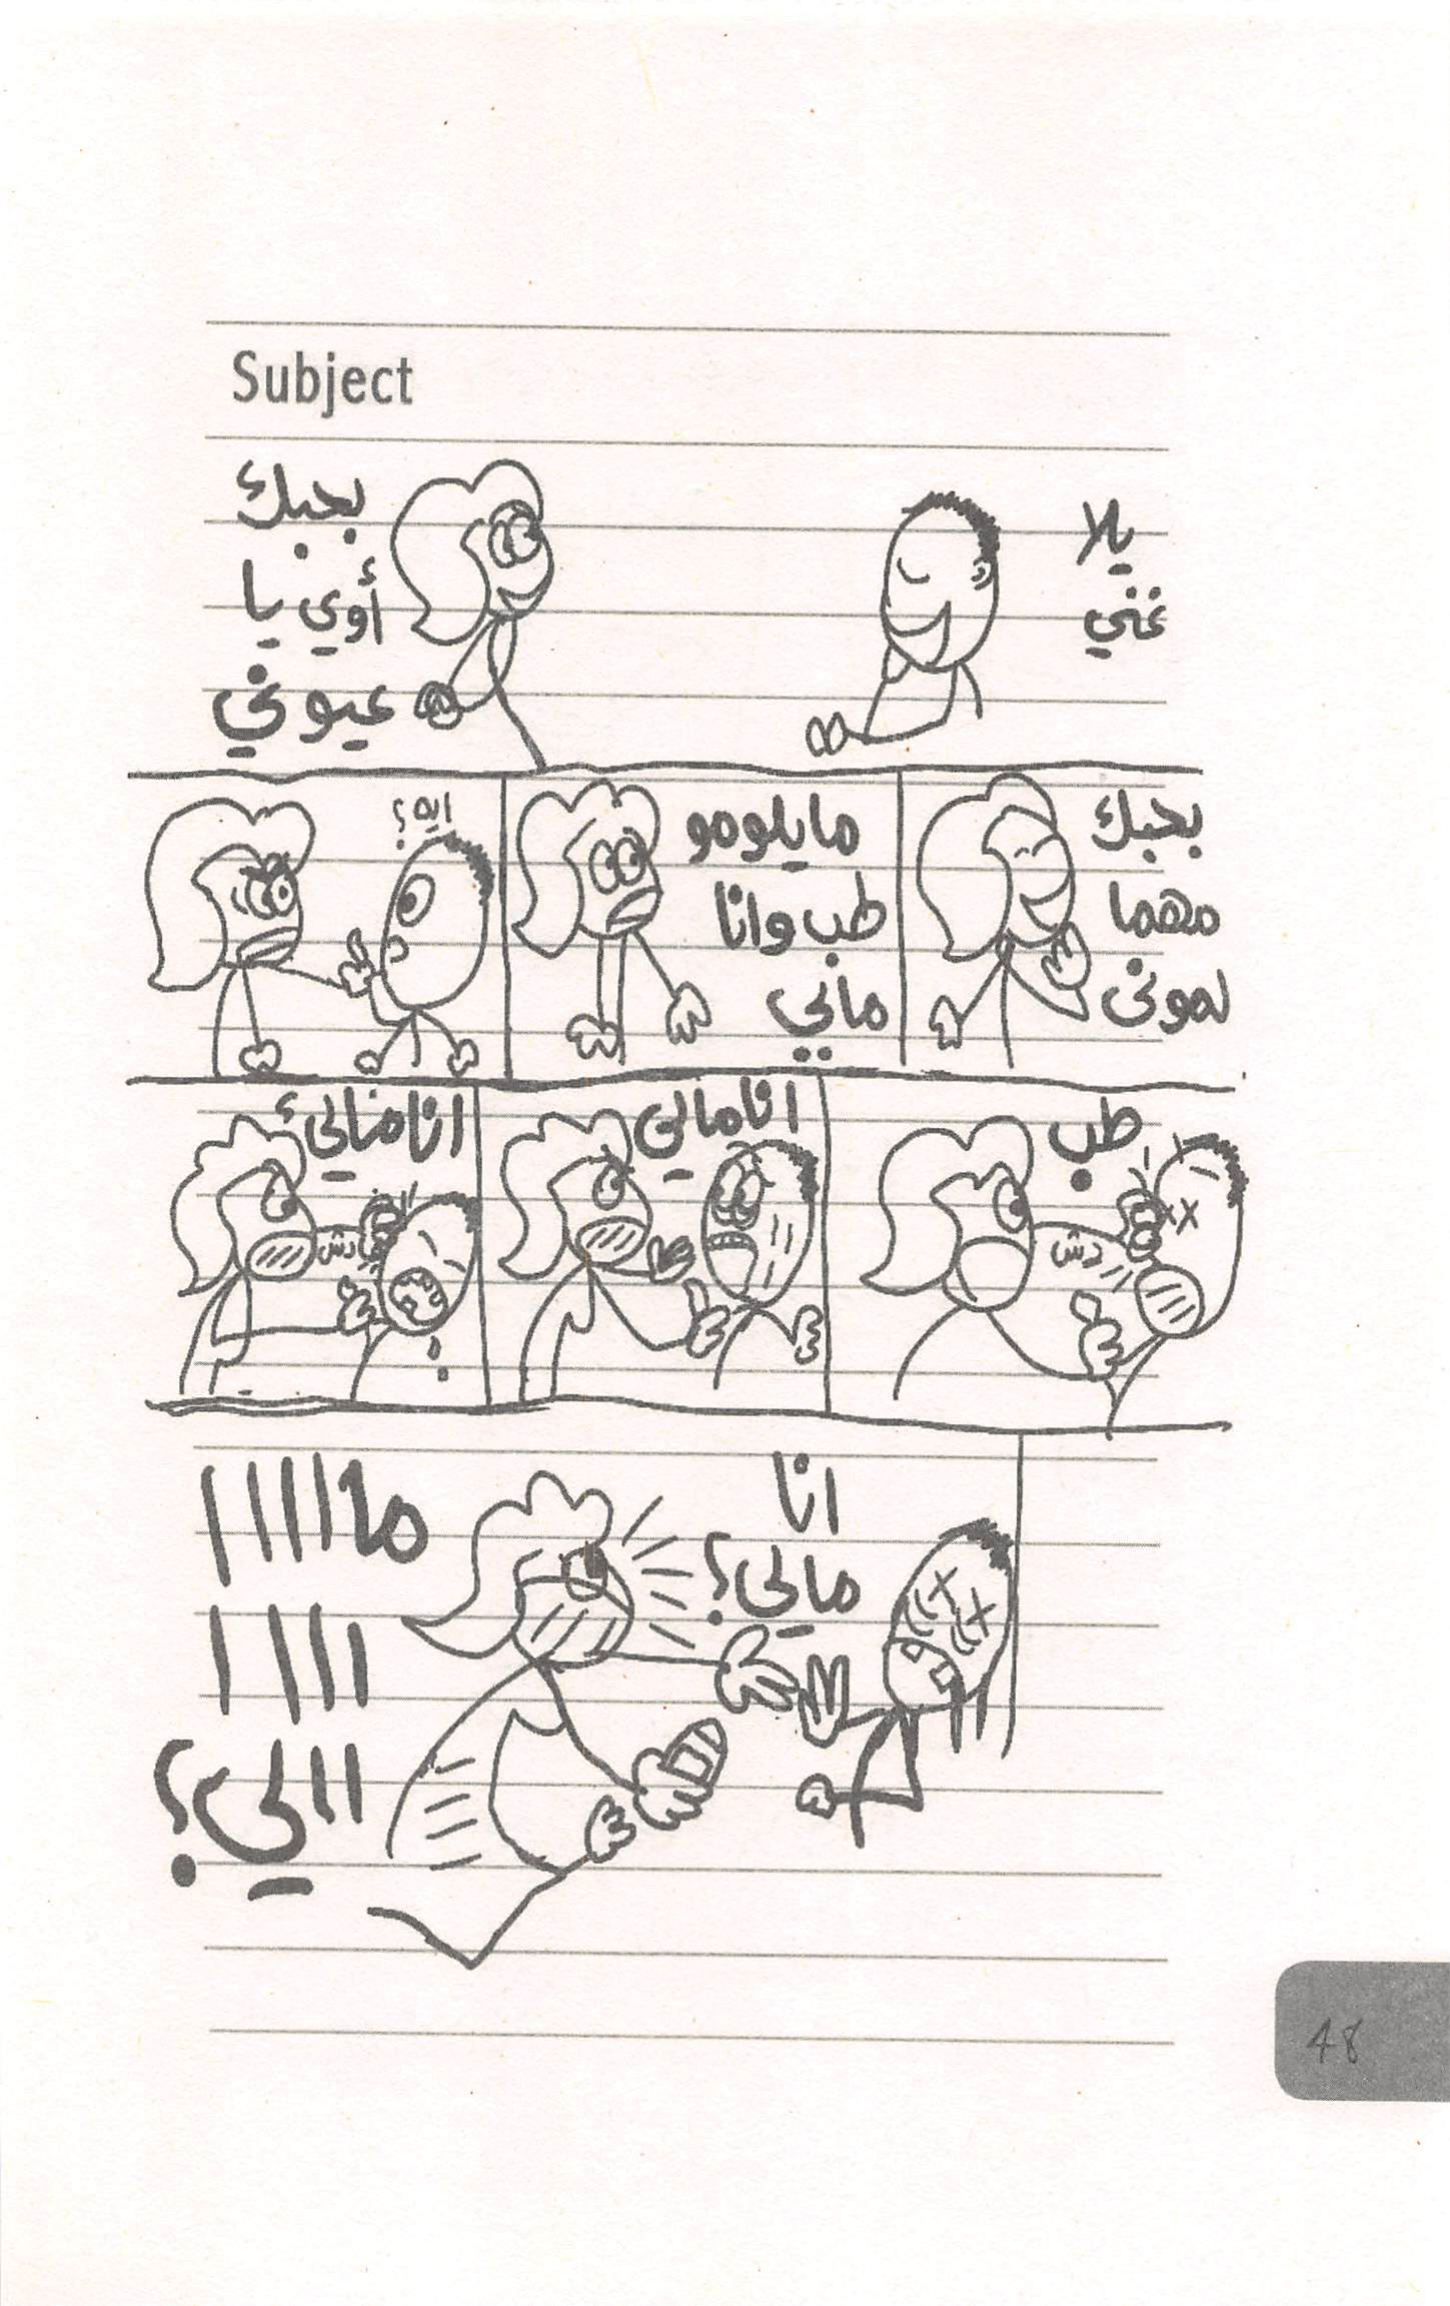 Subject
يلا
غني
بحبك
أوي يا
عيوني
بحبك
مهما
لموني
مايلومو
طب وانا
ماني
ايه؟
طب
دش
انا مالي
انا مالي
دش
انا
مالي؟
مااااا
اااا
االي؟
48